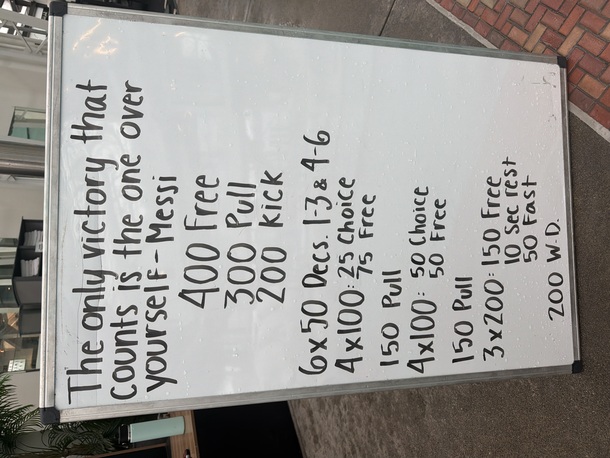 The only victory that
counts is the one over
yourself - Messi
400 Free
300 Pull
200 Kick
6x50 Decs. 1-3 & 4-6
4x100: 25 Choice
75 Free
150 Pull
4x100: 50 Choice
50 Free
150 Pull
3x200: 150 Free
10 Sec rest
50 Fast
200 W.D.